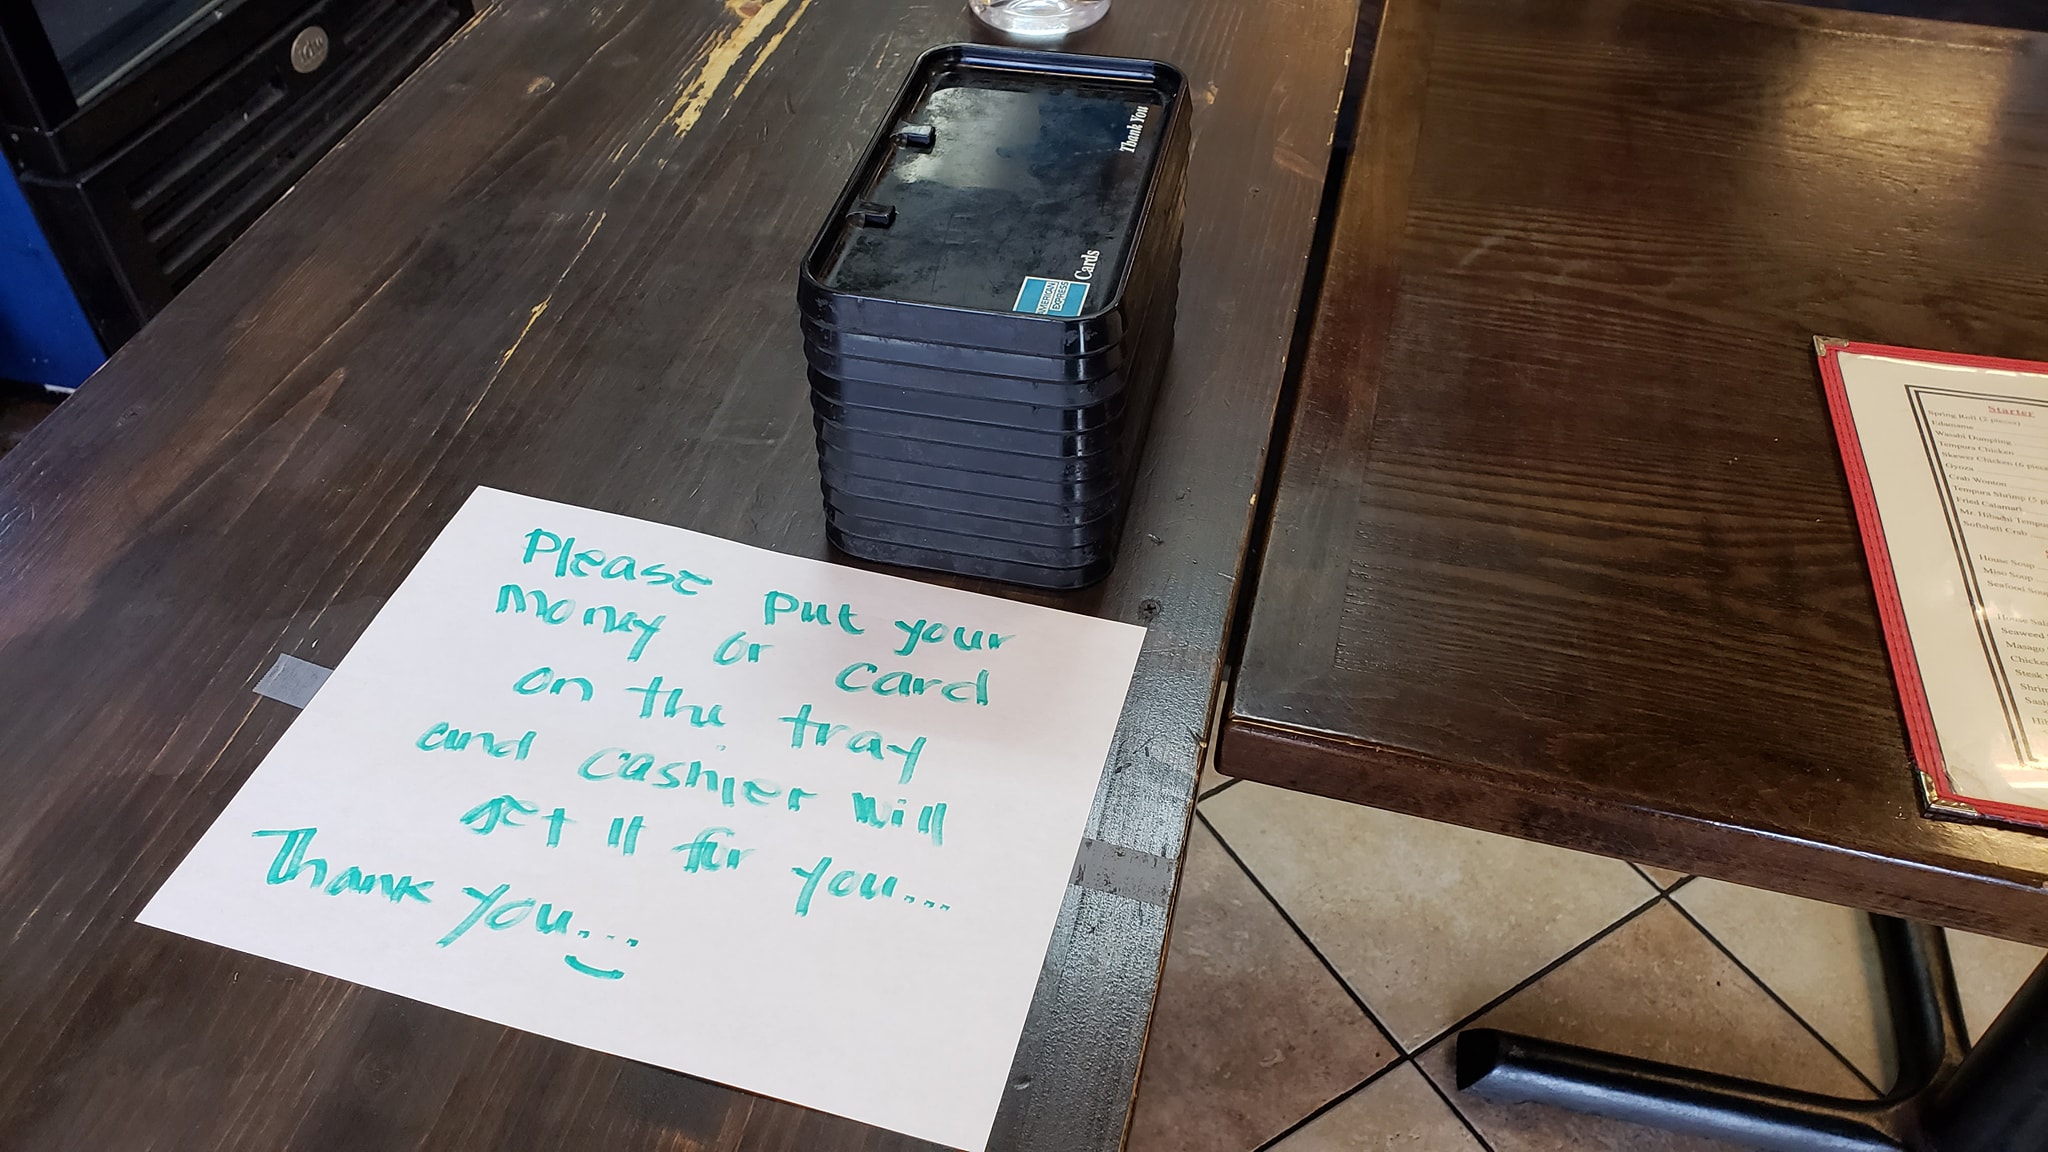 Thank You
Cards
AMERICAN
EXPRESS
Please put your
money or card
on the tray
and cashier will
get it for you....
Thank you...
Starter
Spring Roll (2 pieces)
Edamame
Wasabi Dumpling
Tempura Chicken
Skewer Chicken (6 piece
Gyoza
Crab Wonton
Tempura Shrimp (5
Fried Calamari
Mr. Hibachi Tempu
Softshell Crab
House Soup
Miso Soup
Seafood Sou
House Sala
Seaweed
Masago
Chicke
Steak
Shrim
Sash